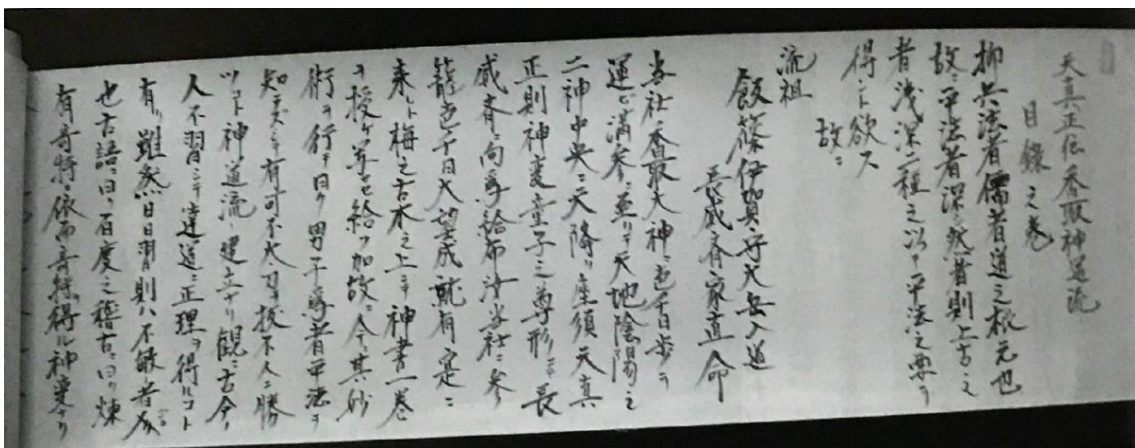 天真正伝香取神道流
目録之巻
抑兵法者儒者道之根元也
故ニ平法者深シ然者則上古ニハ
者浅深二種之以テ平法之要ヲ
得ント欲ス
故ニ
流祖
飯篠伊賀ノ守大岳入道
長威斉家直命
当社ハ香取大神ニ色千日歩ヲ
運ビ満参ニ至リテ天地陰陽之
二神中央ニ天降リ座須天真
正則神変童子之尊形ニテ長
威斉ニ向ヒ給而汝当社ニ参
籠色千日大望成就有寔ニ
来レト梅之古木之上ニテ神書一巻
ヲ授ケ給フ加故ニ今其妙
術ヲ行テ曰ク男子為者平法ヲ
知ラズシテ有可不大刀ヲ抜不人ニ勝
ツコト神道流ニ建立ナリ観ニ古今ノ
人不習シテ達道ニ正理ヲ得ルコト
有リ雖然日習則ハ不敏者
也古語ニ曰ク百度之稽古ニ曰ク煉
有奇特ニ依而奇特得ル神変ナリ